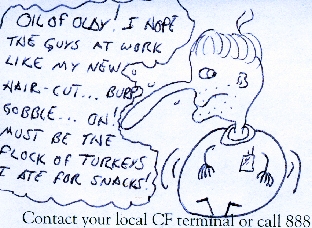 OIL OF OLAY! I HOPE
THE GUYS AT WORK
LIKE MY NEW
HAIR-CUT... BURP
GOBBLE... OH!
MUST BE THE
FLOCK OF TURKEYS
I ATE FOR SNACKS!
Contact your local CF terminal or call 888